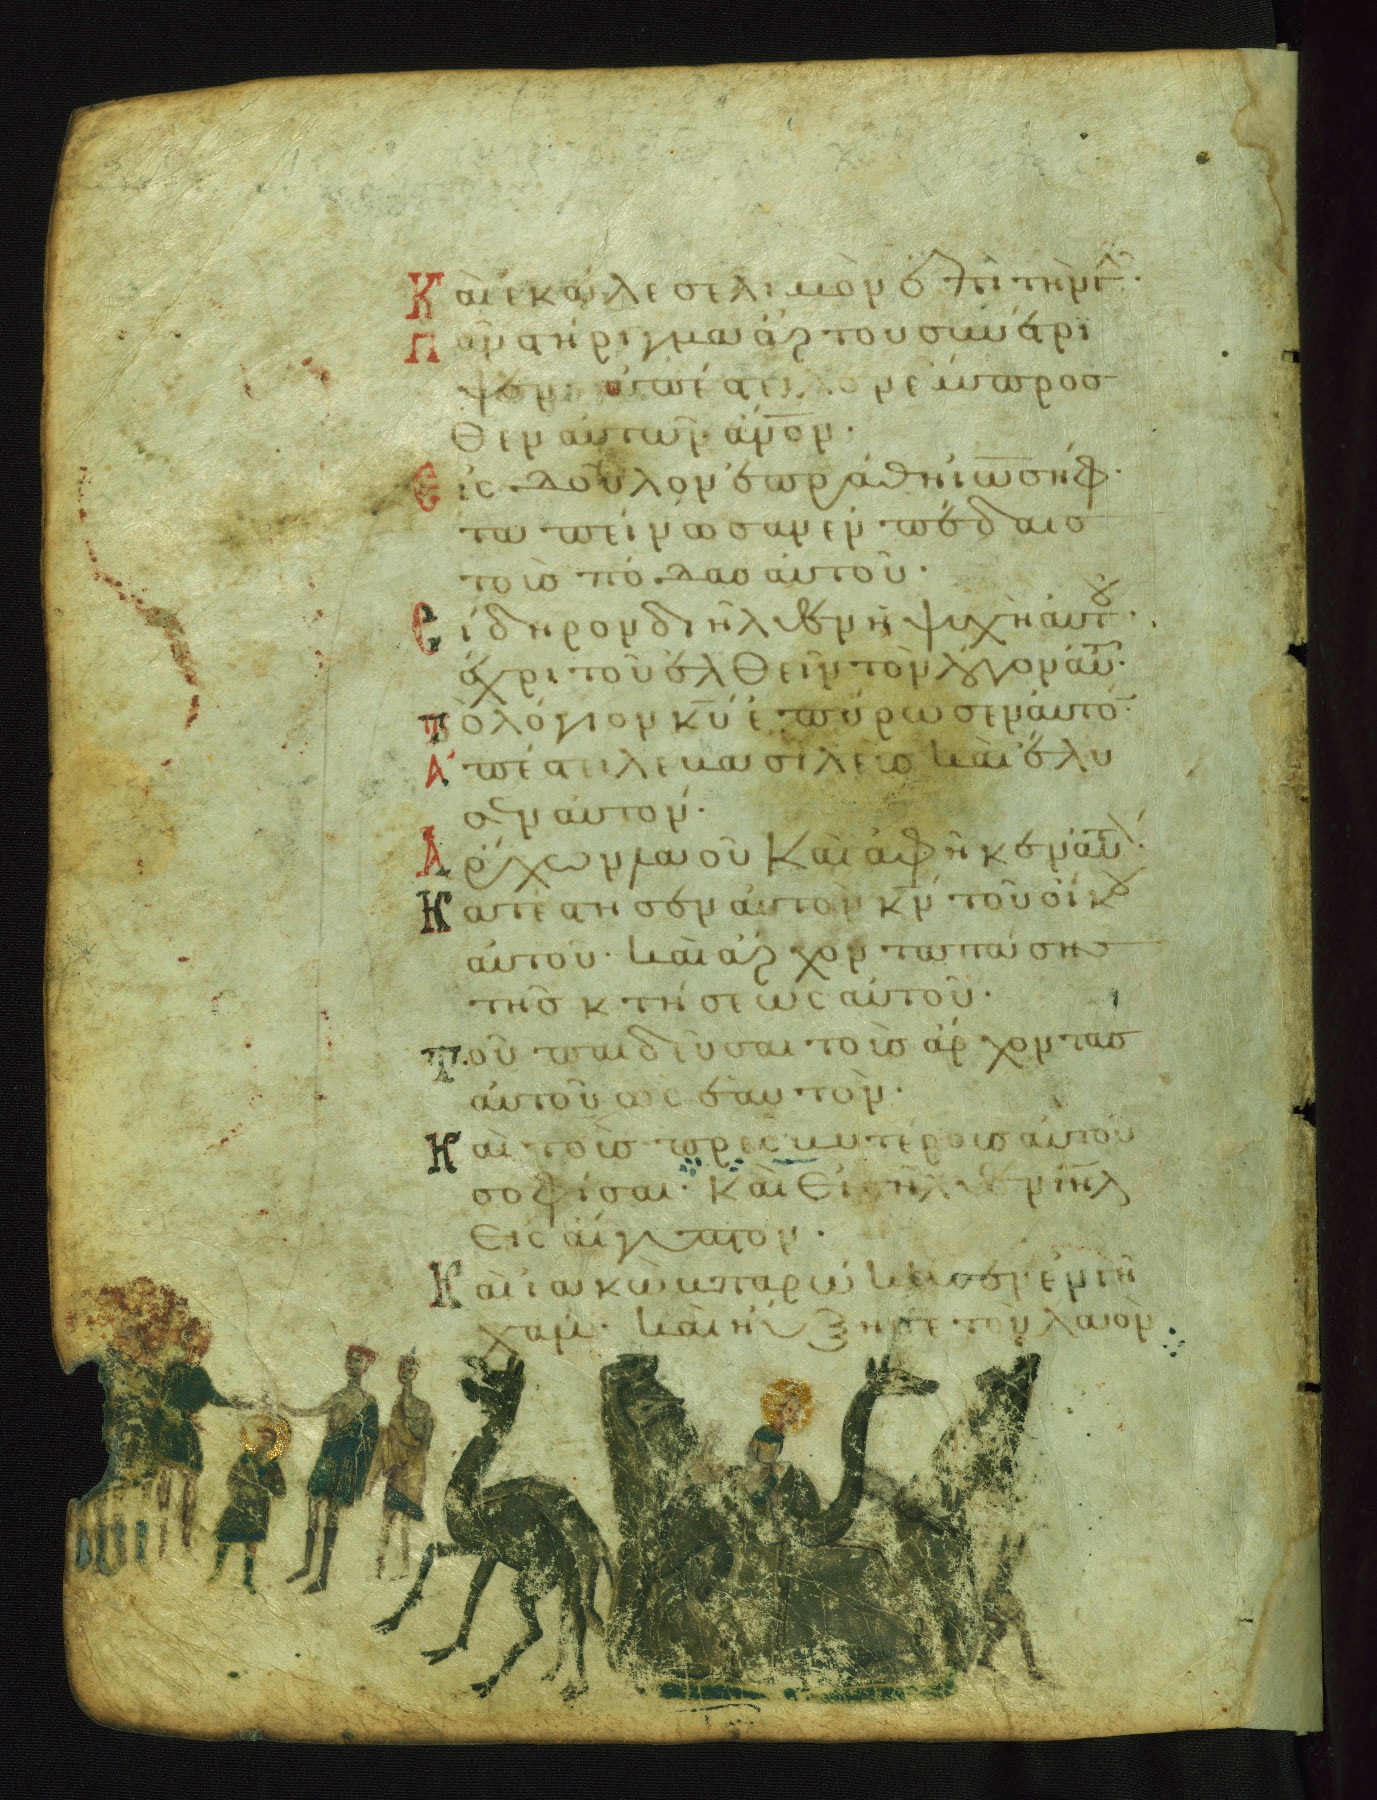 Καὶ ἐκάλεσε λιμὸν ἐπὶ τὴν γῆν·
Πᾶν στήριγμα ἄρτου συνέτρι
ψεν· ἀπέστειλεν ἔμπροσ
θεν αὐτῶν ἄνον·
Εἰς δοῦλον ἐπράθη ἰωσήφ·
ἐταπείνωσαν ἐν πέδαις
τοὺς πόδας αὐτοῦ·
Σίδηρον διῆλθεν ἡ ψυχὴ αὐτοῦ·
ἄχρι τοῦ ἐλθεῖν τὸν λόγον αὐτοῦ·
Τὸ λόγιον κυ ἐπύρωσεν αὐτόν·
Ἀπέστειλε βασιλεὺς καὶ ἔλυ
σεν αὐτόν·
Ἄρχων λαοῦ καὶ ἀφῆκεν αὐτόν·
Κατέστησεν αὐτὸν κν τοῦ οἴκου
αὐτοῦ· καὶ ἄρχοντα πάσης
τῆς κτήσεως αὐτοῦ·
Τοῦ παιδεῦσαι τοὺς ἄρχοντας
αὐτοῦ ὡς ἑαυτόν·
Καὶ τοὺς πρεσβυτέρους αὐτοῦ
σοφίσαι· Καὶ εἰσῆλθεν ιηλ
εἰς αἴγυπτον·
Καὶ ἰακὼβ παρῴκησεν ἐν γῆ
χαμ· καὶ ηὔξησε τὸν λαὸν